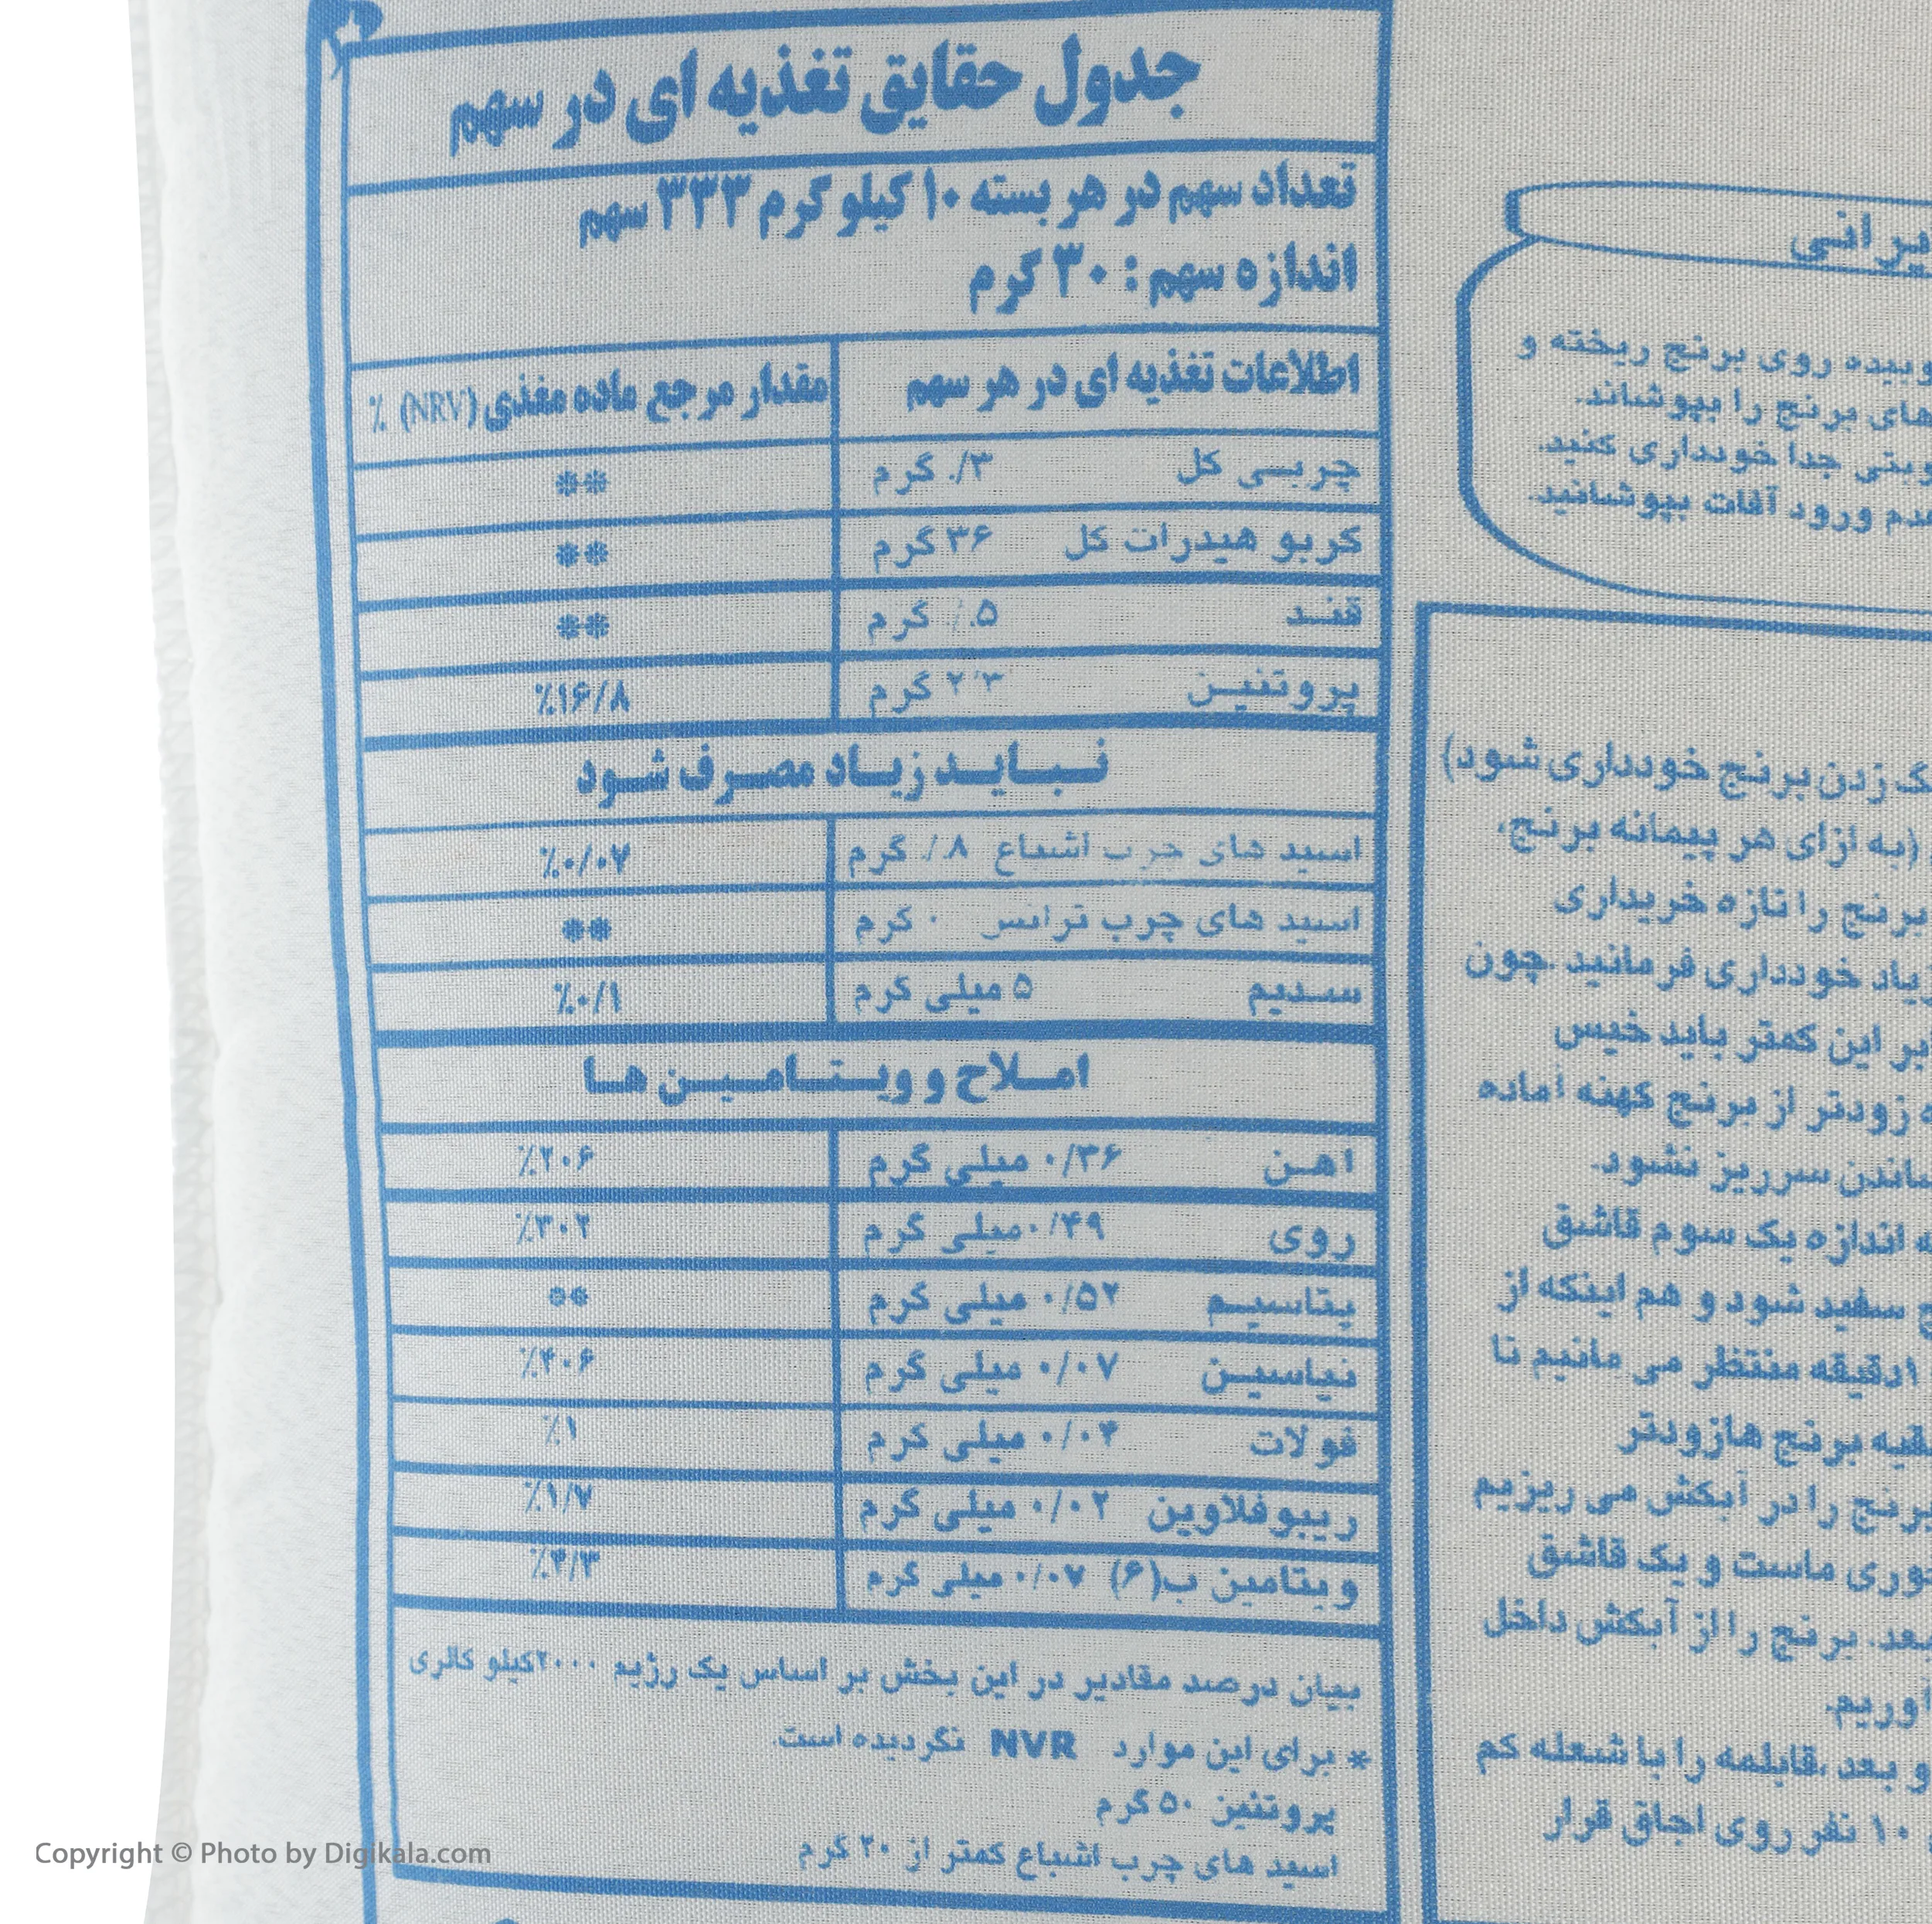 جدول حقایق تغذیه ای در سهم
تعداد سهم در هر بسته ۱۰ کیلو گرم ۳۳۳ سهم
اندازه سهم : ۳۰ گرم
اطلاعات تغذیه ای در هر سهم مقدار مرجع ماده مغذی (NRV) ٪
چربی کل ۳/. گرم **
کربو هیدرات کل ۳۶ گرم **
قند ۵./. گرم **
پروتئین ۲/۳ گرم ٪۱۶/۸
نباید زیاد مصرف شود
اسید های چرب اشباع ۸./. گرم ٪۰/۰۷
اسید های چرب ترانس ۰ گرم **
سدیم ۵ میلی گرم ٪۰/۱
املاح و ویتامین ها
اهن ۰/۳۶ میلی گرم ٪۲۰۶
روی ۰/۴۹ میلی گرم ٪۳۰۲
پتاسیم ۰/۵۲ میلی گرم **
نیاسین ۰/۰۷ میلی گرم ٪۴۰۶
فولات ۰/۰۴ میلی گرم ٪۱
ریبوفلاوین ۰/۰۲ میلی گرم ٪۱/۷
ویتامین ب(۶) ۰/۰۷ میلی گرم ٪۴/۳
بیان درصد مقادیر در این بخش بر اساس یک رژیم ۲۰۰۰کیلو کالری
* برای این موارد NVR نگردیده است.
پروتئین ۵۰ گرم
اسید های چرب اشباع کمتر از ۲۰ گرم
یرانی
روی برنج ریخته و
های برنج را بپوشاند.
جدا خودداری کنید.
ورود آفات بپوشانید.
زدن برنج خودداری شود)
(به ازای هر پیمانه برنج،
برنج را تازه خریداری
خودداری فرمائید .چون
این کمتر باید خیس
زودتر از برنج کهنه آماده
سرریز نشود.
اندازه یک سوم قاشق
سفید شود و هم اینکه از
دقیقه منتظر می مانیم تا
برنج هازودتر
برنج را در آبکش می ریزیم
ماست و یک قاشق
بعد، برنج را از آبکش داخل
و بعد ،قابلمه را با شعله کم
۱۰ نفر روی اجاق قرار
Copyright © Photo by Digikala.com